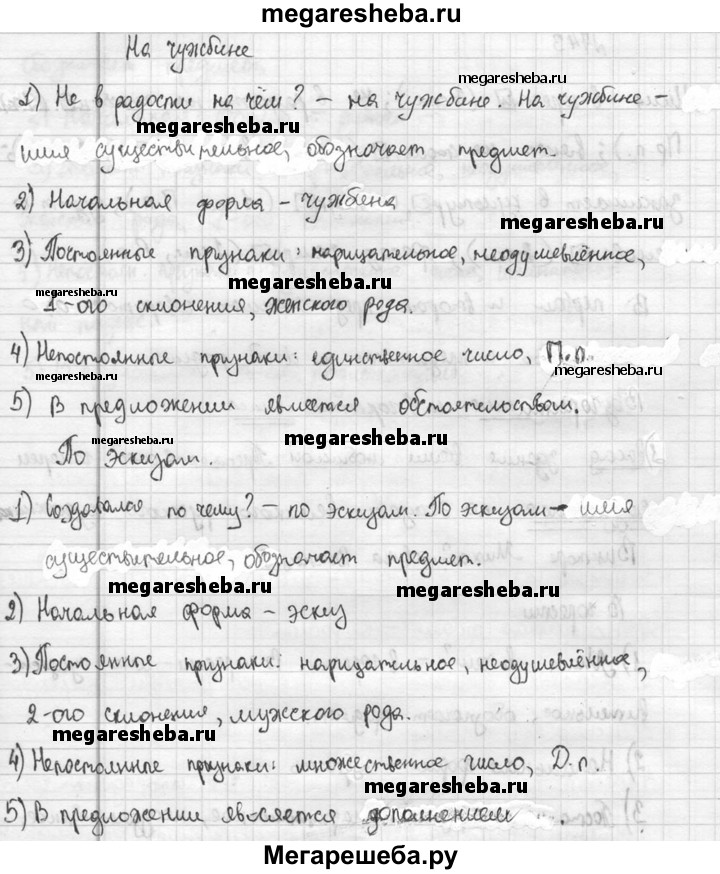 megaresheba.ru
На чужбине
megaresheba.ru
1) Не в радости на чём? – на чужбине. На чужбине –
megaresheba.ru
имя существительное, обозначает предмет.
2) Начальная форма – чужбина
megaresheba.ru
3) Постоянные признаки: нарицательное, неодушевлённое,
megaresheba.ru
megaresheba.ru
1-ого склонения, женского рода.
megaresheba.ru
4) Непостоянные признаки: единственное число, П.п.
megaresheba.ru
megaresheba.ru
5) В предложении является обстоятельством.
megaresheba.ru
megaresheba.ru
По эскизам.
1) Создавалась по чему? – по эскизам. По эскизам – имя
существительное, обозначает предмет.
megaresheba.ru
megaresheba.ru
2) Начальная форма – эскиз
3) Постоянные признаки: нарицательное, неодушевлённое,
2-ого склонения, мужского рода.
megaresheba.ru
4) Непостоянные признаки: множественное число, Д.п.
megaresheba.ru
5) В предложении является дополнением.
Мегарешеба.ру